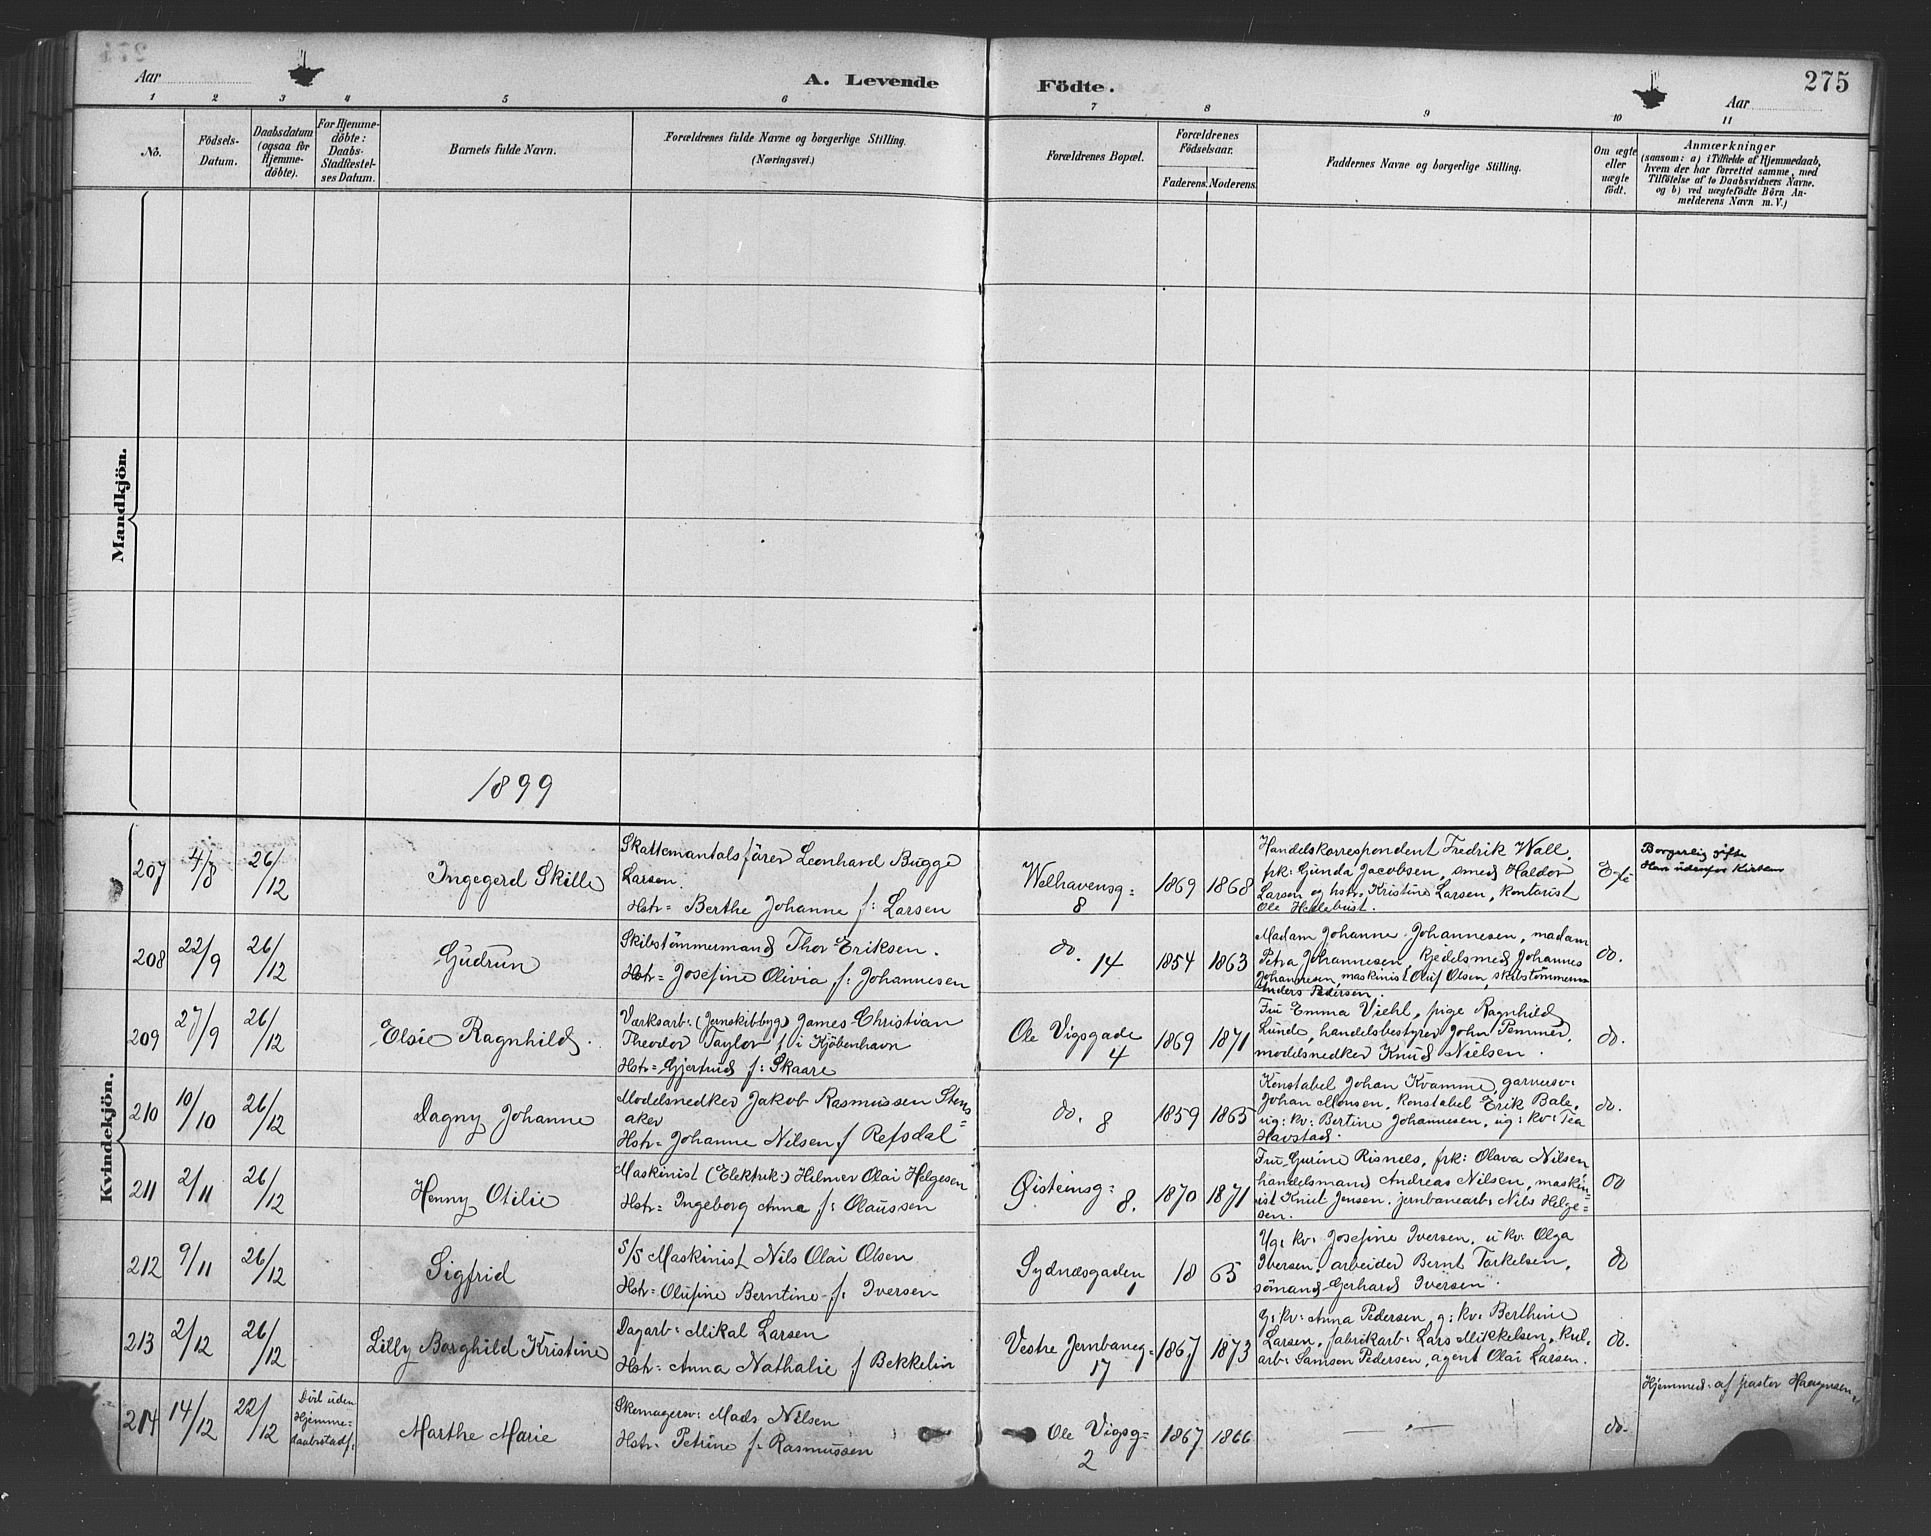 275
Aar
A. Levende Födte.
Aar
1 2 3 4 5 6 7 8 9 10 11
No.
Födsels-Datum.
Daabsdatum (ogsaa for Hjemmedöbte).
For Hjemmedöbte: Daabs-Stadfæstelses Datum.
Barnets fulde Navn.
Forældrenes fulde Navne og borgerlige Stilling. (Næringsvei.)
Forældrenes Bopæl.
Forældrenes Födselsaar.
Faderens. Moderens.
Faddernes Navne og borgerlige Stilling.
Om ægte eller uægte födt.
Anmærkninger
(saasom: a) i Tilfælde af Hjemmedaab,
hvem der har forrettet samme, med
Tilföielse af to Daabsvidners Navne.
og b) ved uægtefödte Börn An-
melderens Navn m. V.)
Mandkjön.
1899
Kvindekjön.
207 4/8 26/12 Ingegerd Skille
Skattemantalsfører Leonhard Bugge
Larsen.
Hstr= Berthe Johanne f: Larsen
Welhavensg= 8
1869 1868
Handelskorrespondent Fredrik Wall,
frk: Gunda Jacobsen, smed Haldor
Larsen og hstr. Kristine Larsen, kontorist
Ole Hellebust.
Egte
Borgerlig gifte
Han udenfor Kirken
208 22/9 26/12 Gudrun
Skibstømmermand Thor Eriksen.
Hstr= Josefine Olivia f: Johannesen
do. 14
1854 1863
Madam Johanne Johannesen, madam
Petra Johannesen, kjedelsmed Johannes
Johannesen, maskinist Oluf Olsen, skibstømmerm.
Anders Pedersen.
do.
209 27/9 26/12 Elsie Ragnhild.
Værksarb: (Jernskibbyg) James Christian
Theodor Taylor f i Kjöbenhavn
Hstr= Gjertrud f: Skaare
Ole Vigsgade 4
1869 1871
Fru Emma Viehl, pige Ragnhild
Lunde, handelsbestyrer John Pemmer,
modelsnedker Knud Nielsen.
do.
210 10/10 26/12 Dagny Johanne
Modelsnedker Jakob Rasmussen Stens=
aker
Hstr= Johanne Nilsen f Refsdal
do. 8
1859 1865
Konstabel Johan Kvamme, garversv:
Johan Monsen, konstabel Erik Bale,
ug: kv: Bertine Johannesen, ug: kv: Tea
Havstad.
do.
211 2/11 26/12 Henny Otilie
Maskinist (Elektrik:) Helmer Olai Helgesen
Hstr= Ingeborg Anna f: Olaussen
Øisteinsg= 8.
1870 1871
Fru Gurine Risnes, frk: Olava Nilsen
handelsmand Andreas Nilsen, maskin-
ist Knut Jensen, jernbanearb: Nils Helge=
sen.
do
212 9/11 26/12 Sigfrid
S/S Maskinist Nils Olai Olsen
Hstr= Olufine Berntine f: Iversen
Sydnæsgaden 1
18 65
Ug: kv: Josefine Iversen, u kv: Olga
Iversen, arbeider Bernt Torkelsen,
sømand Gerhard Iversen.
do
213 2/12 26/12 Lilly Borghild Kristine
Dagarb: Mikal Larsen
Hstr= Anna Nathalie f Bekkelin
Vestre Jernbaneg= 17
1867 1873
G: kv: Anna Pedersen, g: kv: Berthine
Larsen, fabrikarb: Lars Mikkelsen, kul.
arb: Samson Pedersen, agent Olai Larsen.
do.
214 14/12 22/12
Död uden
Hjemme=
daabsstadf:
Marthe Marie
Skomagersv: Mads Nilsen
Hstr= Petrine f: Rasmussen
Ole Vigsg= 2
1867 1866
do.
Hjemmed: af pastor